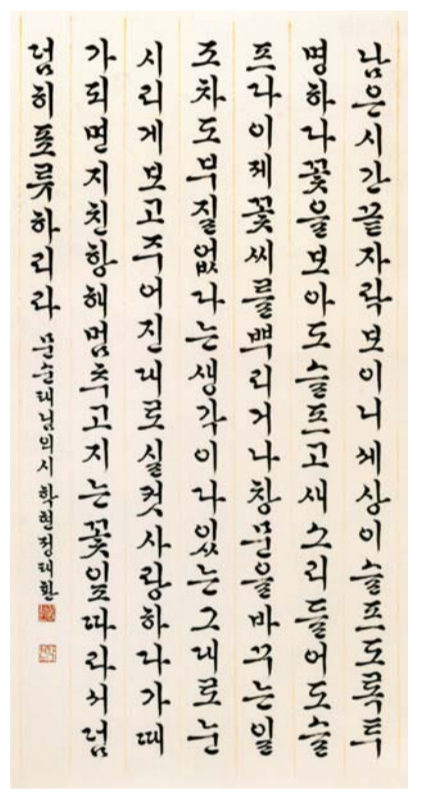 남은시간끝자락보이니세상이슬프도록투
명하다꽃을보아도슬프고새소리들어도슬
프다이제꽃씨를뿌리거나창문을바꾸는일
조차도부질없다는생각이다있는그대로눈
시리게보고주어진대로실컷사랑하다가때
가되면지친항해멈추고지는꽃잎따라서덤
덤히표류하리라 문순태님의시 학현정태환